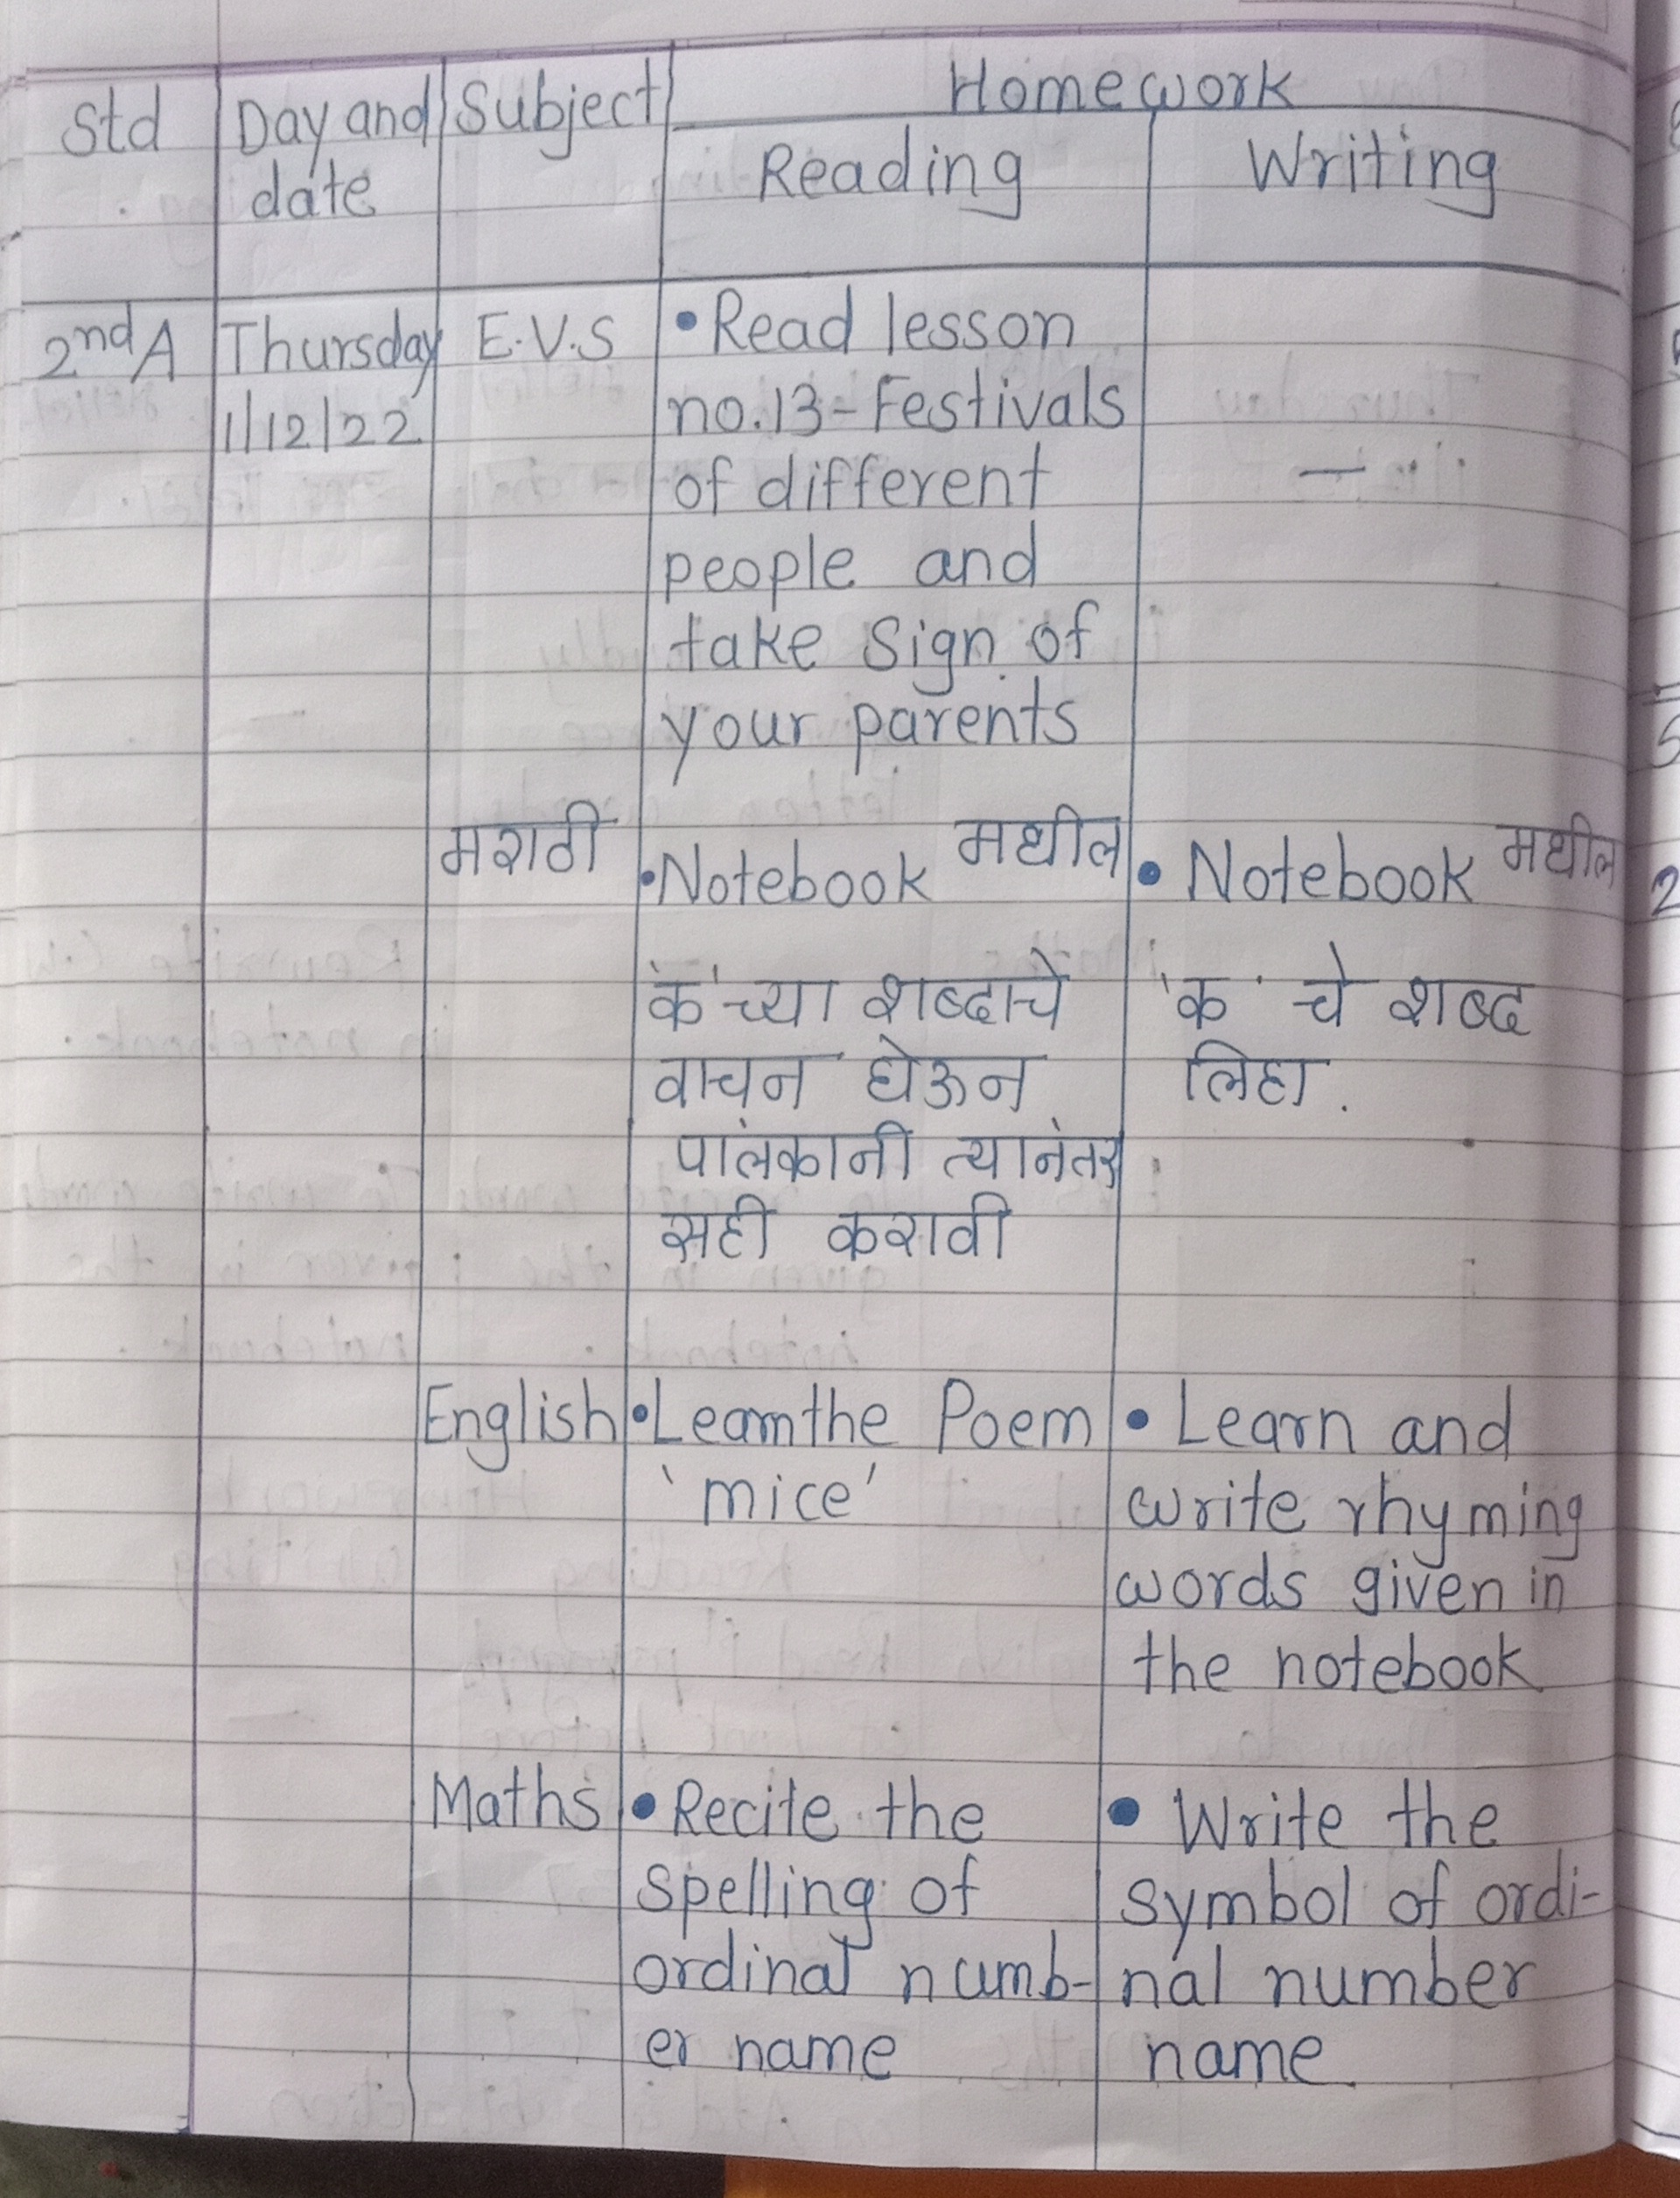 Std Day and Subject Homework
date Reading Writing
2nd A Thursday E.V.S • Read lesson
1/12/22 no.13 - Festivals
of different —
people and
take Sign of
your parents
मराठी • Notebook मधील • Notebook मधील
'क' च्या शब्दाचे 'क' चे शब्द
वाचन घेऊन लिहा.
पालकांनी त्यानंतर
सही करावी
English • Learn the Poem • Learn and
'mice' write rhyming
words given in
the notebook
Maths • Recite the • Write the
spelling of symbol of ordi-
ordinal numb- nal number
er name name.